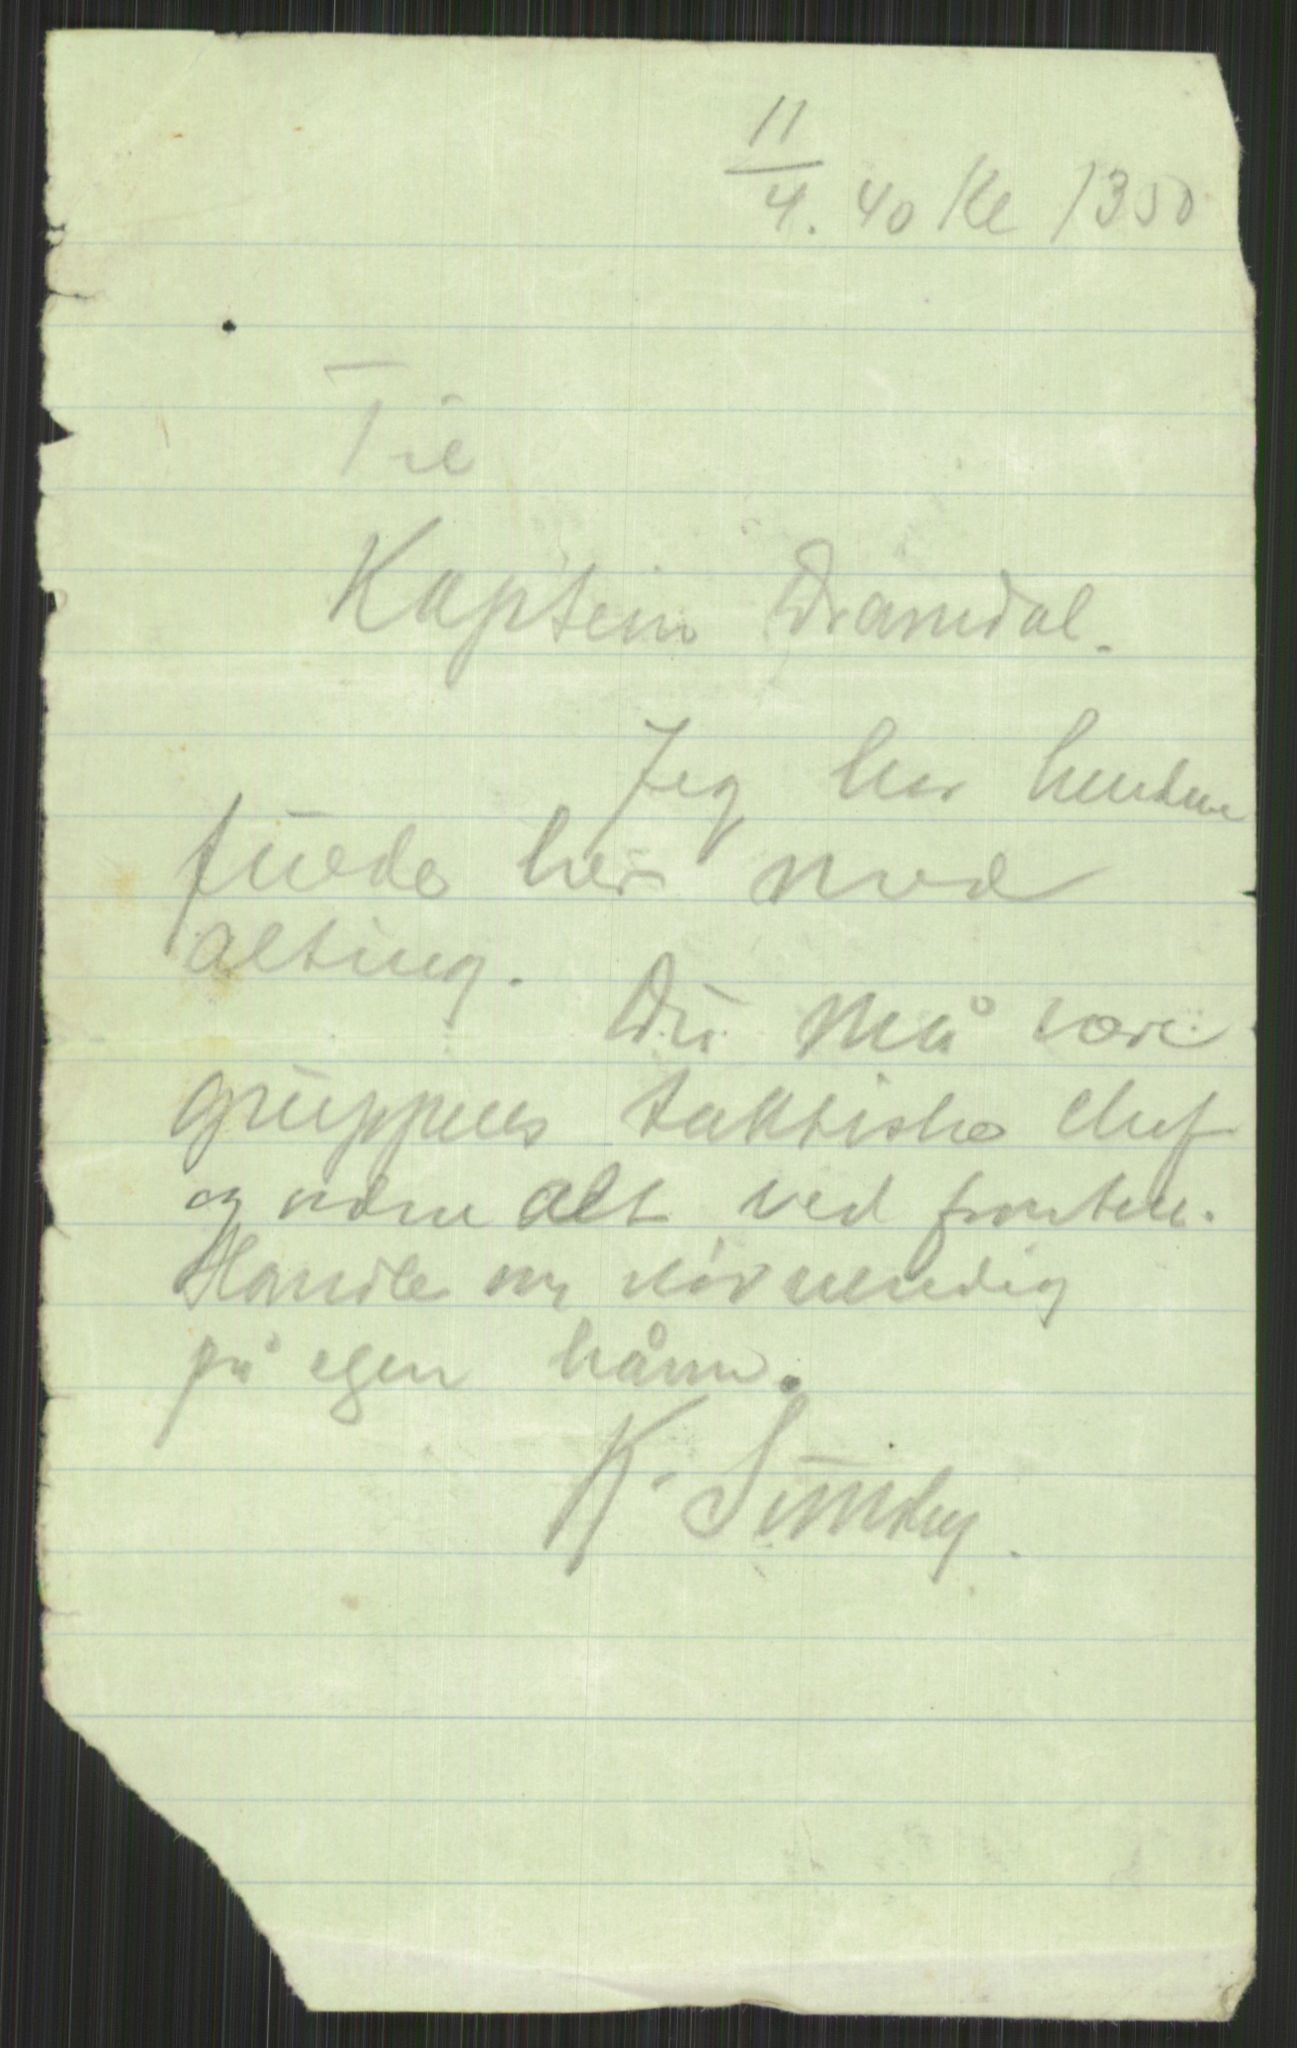 11/4. 40 Kl 1350
Til
Kaptein Dramdal.
Jeg har hendene
fulde her med
alting. Du må være
gruppens taktiske chef
og ordne alt ved fronten.
Handle om nødvendig
på egen hånd.
K. Sundby.